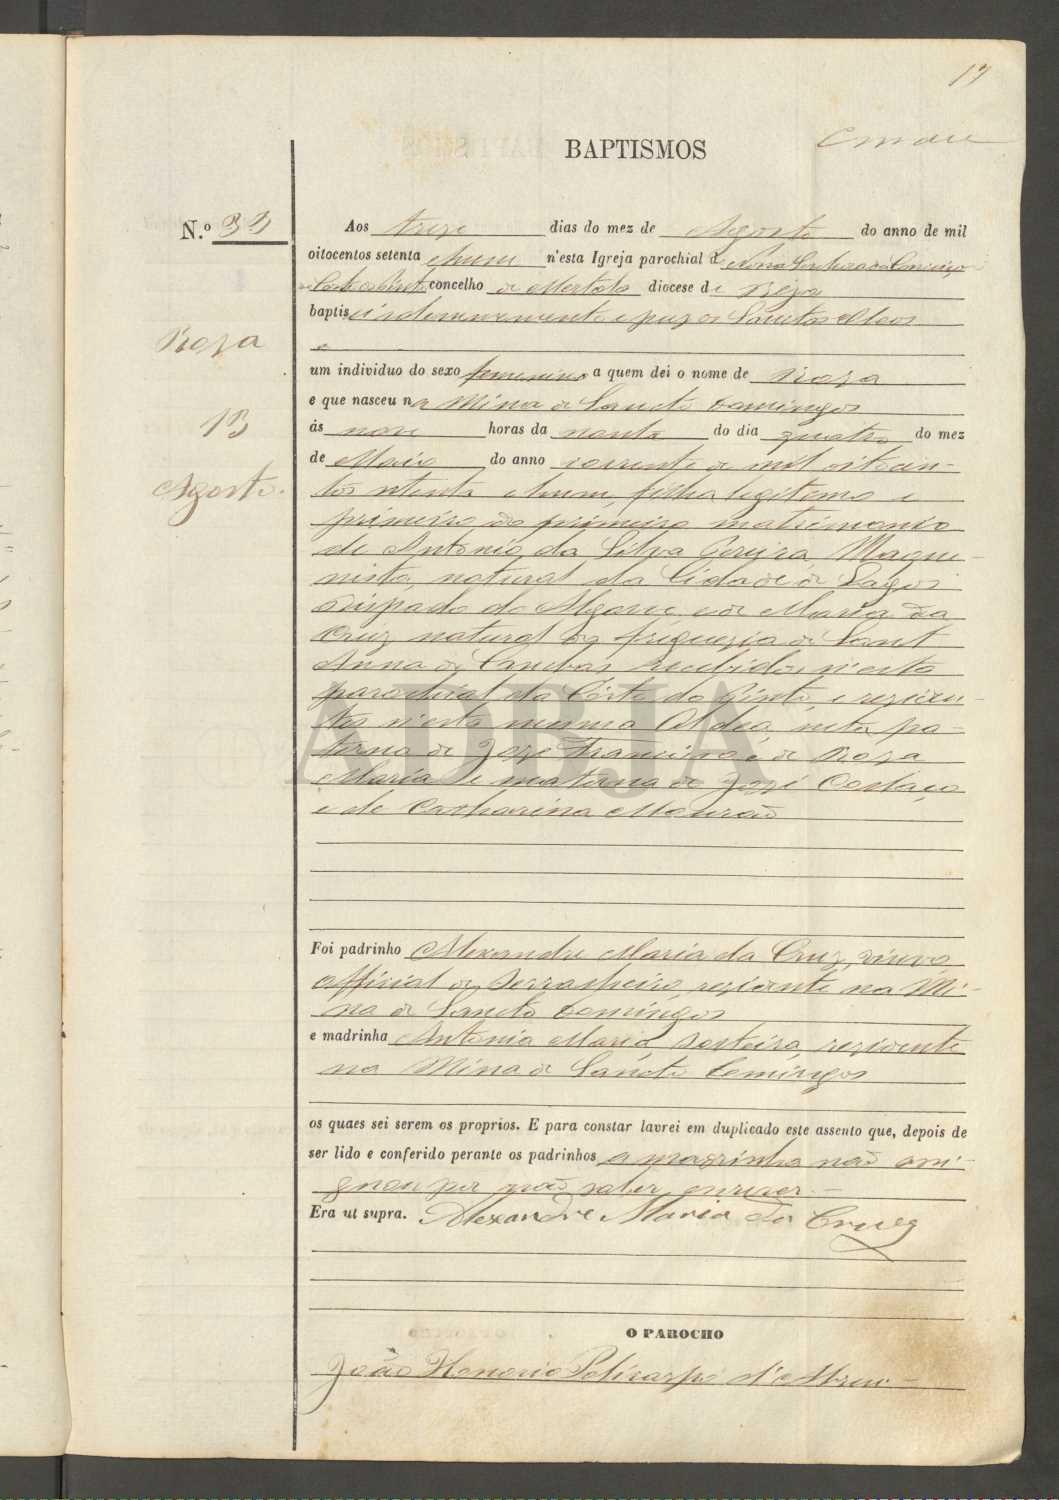 17
BAPTISMOS
N.º 33
Aos treze dias do mez de Agosto do anno de mil
oitocentos setenta ehum n'esta Igreja parochial de Nossa Senhora da Conceição
da Corte do Pinto concelho de Mertola diocese de Beja
baptisei solemnemente e puz os Sanctos Oleos
a
Roza
um individuo do sexo femenino a quem dei o nome de Roza
e que nasceu na Mina de Sancto Domingos
13
ás nove horas da noute do dia quatro do mez
de Maio do anno corrente de mil oitocen-
Agosto.
tos setenta ehum, filha legitema e
primeira do primeiro matrimonio
de Antonio da Silva Pereira, Maque-
nista, natural da Cidade de Lagos
Bispado do Algarve e de Maria da
Cruz natural da freguezia de Sant
Anna de Cambas recebidos n'esta
parochial da Córte do Pinto, e reziden-
tes n'esta mesma Aldea, neta pa-
terna de Joze Francisco e de Roza
Maria e materna de José Collaço
e de Catharina Mourão
ADBJA
Foi padrinho Alexandre Maria da Cruz, viuvo
official de Serralheiro, rezidente na Mi-
na de Sancto Domingos
e madrinha Antonia Maria, solteira, rezidente
na Mina de Sancto Domingos
os quaes sei serem os proprios. E para constar lavrei em duplicado este assento que, depois de
ser lido e conferido perante os padrinhos a madrinha não assi-
gnou por não saber escrever.
Era ut supra. Alexandre Maria da Cruz
O PAROCHO
João Honorio Policarpo d'Abreu